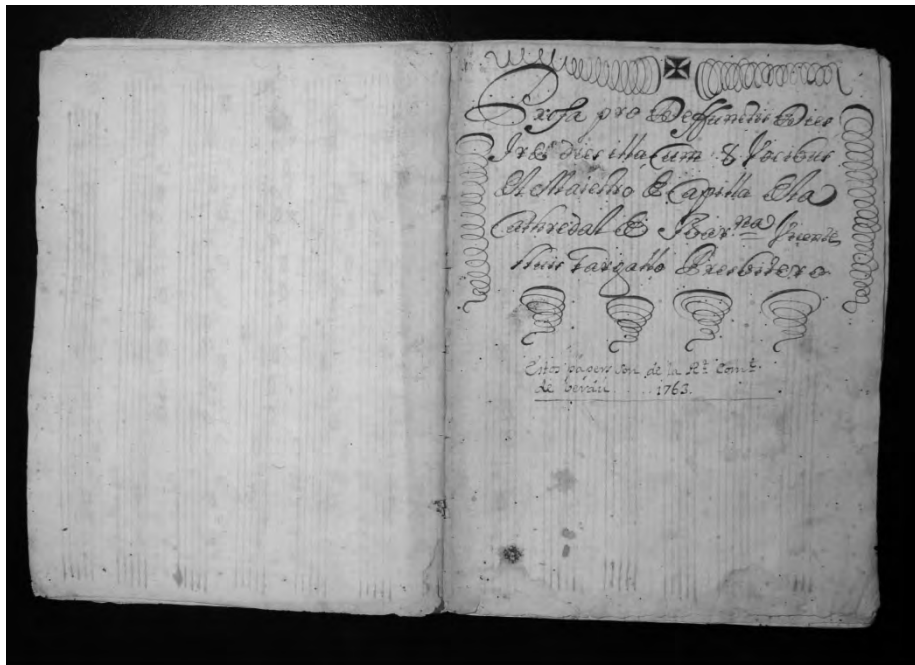 Prosa pro Deffunctis Dies
Iræ dies illa cum 8 Vocibus
Del Maestro De Capilla De la
Cathredal De Bar.na Vicente
Lluis Gargallo Presbitero
Estos papers son de la Rt. Comt.
de 1763.